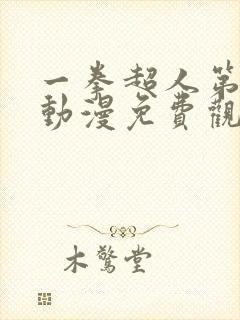 一拳超人第
動漫免費觀
木驚堂